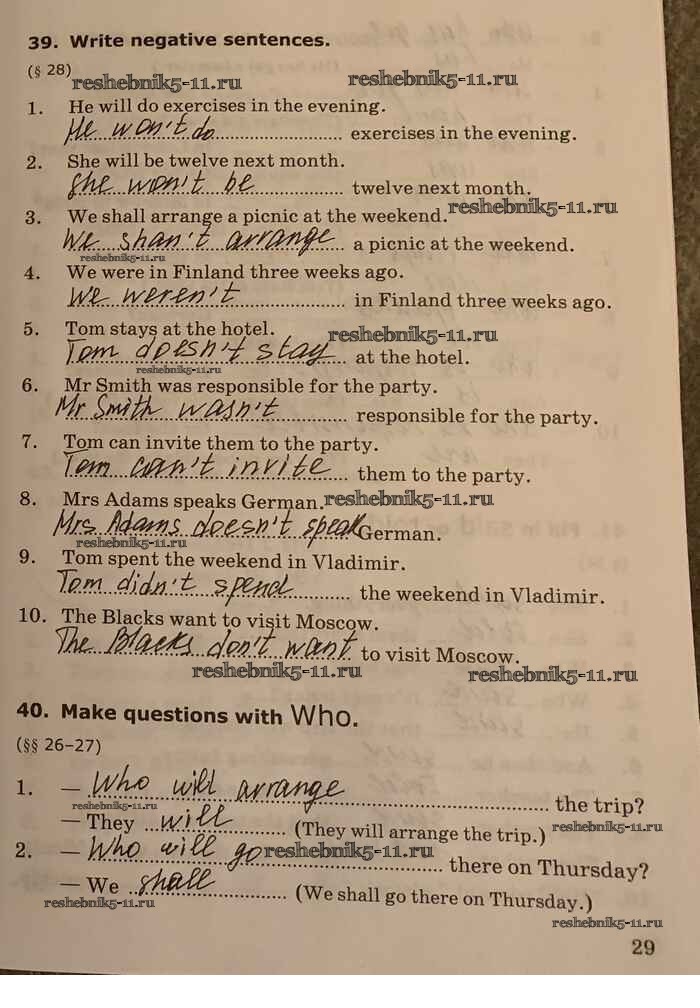 39. Write negative sentences.
(§ 28)
reshebnik5-11.ru
reshebnik5-11.ru
1. He will do exercises in the evening.
He won't do exercises in the evening.
2. She will be twelve next month.
She won't be twelve next month.
3. We shall arrange a picnic at the weekend. reshebnik5-11.ru
We shan't arrange a picnic at the weekend.
reshebnik5-11.ru
4. We were in Finland three weeks ago.
We weren't in Finland three weeks ago.
5. Tom stays at the hotel. reshebnik5-11.ru
Tom doesn't stay at the hotel.
reshebnik5-11.ru
6. Mr Smith was responsible for the party.
Mr Smith wasn't responsible for the party.
7. Tom can invite them to the party.
Tom can't invite them to the party.
8. Mrs Adams speaks German. reshebnik5-11.ru
Mrs Adams doesn't speak German.
reshebnik5-11.ru
9. Tom spent the weekend in Vladimir.
Tom didn't spend the weekend in Vladimir.
10. The Blacks want to visit Moscow.
The Blacks don't want to visit Moscow.
reshebnik5-11.ru reshebnik5-11.ru
40. Make questions with Who.
(§§ 26–27)
1. — Who will arrange the trip?
reshebnik5-11.ru
— They will (They will arrange the trip.) reshebnik5-11.ru
2. — Who will go there on Thursday?
reshebnik5-11.ru
— We shall (We shall go there on Thursday.)
reshebnik5-11.ru reshebnik5-11.ru
29